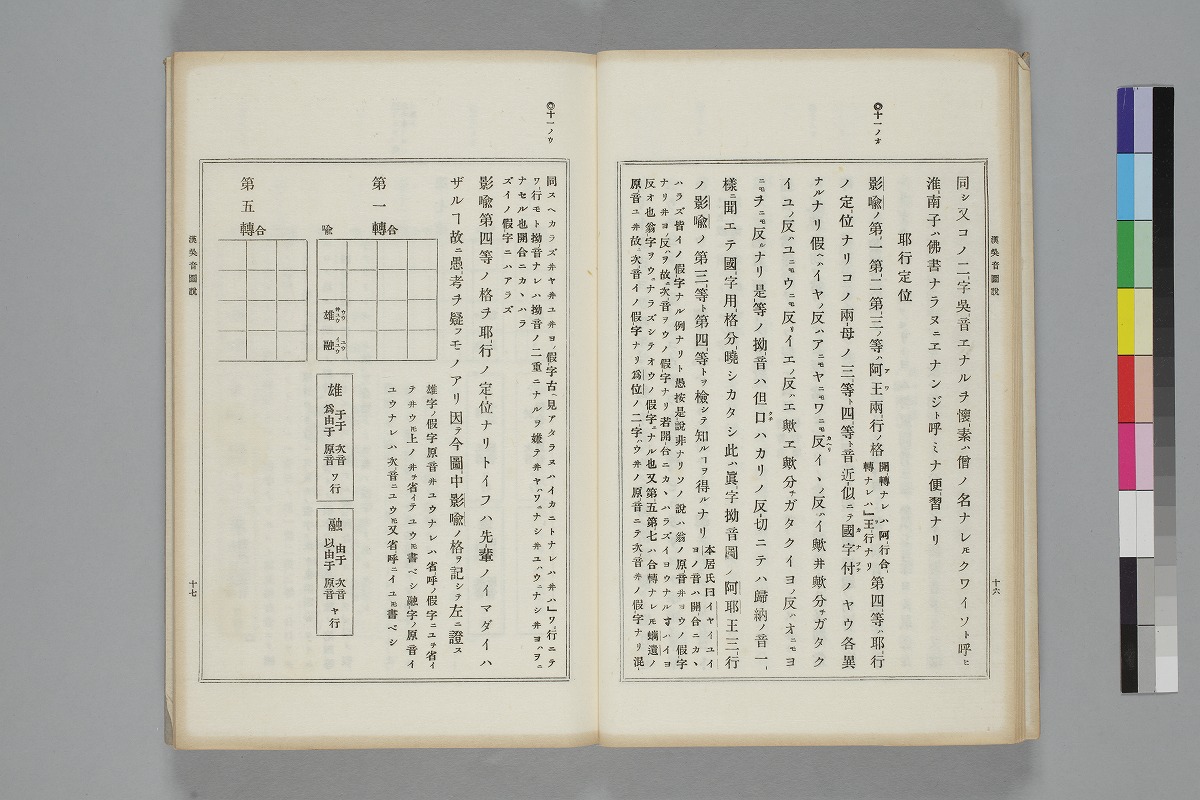 ◎十一ノオ
漢吳音圖說
十六
同シ又コノ二字吳音ヱナルヲ懷素ハ僧ノ名ナレㇳモクワイソト呼ヒ
淮南子ハ佛書ナラヌニヱナンジト呼ミナ便習ナリ
耶行定位
影喩ノ第一第二第三ノ等ハ阿王兩行ノ格開轉ナレハ阿行合轉ナレハ王行ナリ第四等ハ耶行
ノ定位ナリコノ兩母ノ三等ト四等ト音近似ニテ國字付ノヤウ各異
ナルナリ假ヘハイヤノ反ハアニモヤニモワニモ反イヽノ反ハイ歟井歟分チガタク
イユノ反ハユニモウニモ反リイエノ反ハエ歟ヱ歟分チガタクイヨノ反ハオニモヨ
ニモヲニモ反ルナリ是等ノ拗音ハ但口ハカリノ反切ニテハ歸納ノ音一
樣ニ聞エテ國字用格分曉シカタシ此ハ眞字拗音圖ノ阿耶王三行
ノ影喩ノ第三等ト第四等トヲ檢シテ知ルヿヲ得ルナリ本居氏曰イヤイユイヨノ音ハ開合ニカヽ
ハラズ皆イノ假字ナル例ナリト愚按是說非ナリソノ說ハ翁ノ原音井ヨウノ假字
ナリ井ヨノ反ヲ故ニ次音ヲウノ假字ナリ若開合ニカヽハラズイヨウナルオハイヨ
反オ也翁字ヲウナラズシテオウノ假字ナル也又第五第七ハ合轉ナレㇳモ蠵遺ノ
原音ユ井故ニ次音イノ假字ナリ爲位ノ二字ハウ井ノ原音ニテ次音井ノ假字ナリ混
◎十一ノウ
同スヘカラズ井ヤ井ユ井ヨノ假字古ヘ見アタラヌハイカニトナレハ井ハワ行ニテ
ワ行モト拗音ナレハ拗音ノ二重ニナルヲ嫌テ井ヤハワナシ井ユハウニナシ井ヨハヲニ
ナセル也開合ニカヽハラ
ズイノ假字ニハアラズ
影喩第四等ノ格ヲ耶行ノ定位ナリトイフハ先輩ノイマダイハ
ザルヿ故ニ愚考ヲ疑フモノアリ因テ今圖中影喩ノ格ヲ記シテ左ニ證ス
第一轉合
喩
雄
井ユウ
ウウ
融
イユウ
ユウ
雄字ノ假字原音井ユウナレハ省呼ノ假字ニユヲ省イ
テ井ウㇳモ上ノ井ヲ省イテユウㇳモ書ベシ融字ノ原音イ
ユウナレハ次音ニユウㇳモ又省呼ニイユㇳモ書ベシ
雄
于于 次音
爲由于 原音
ワ行
融
由于 次音
以由于 原音
ヤ行
第五轉合
漢吳音圖說
十七